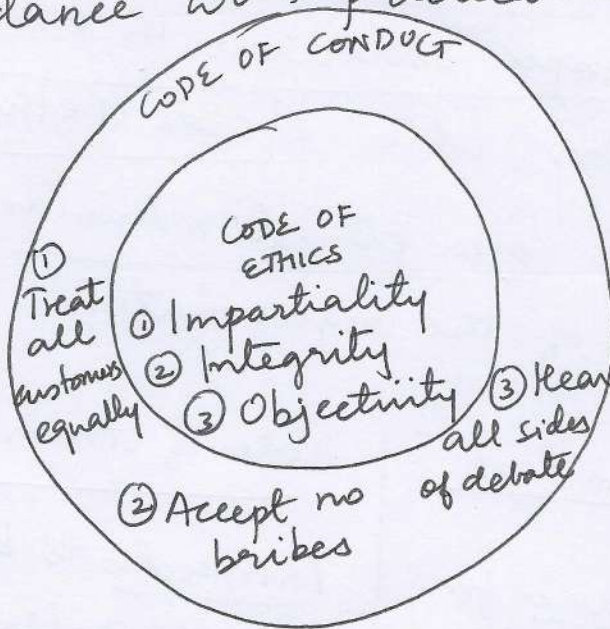 CODE OF CONDUCT
CODE OF
ETHICS
① Impartiality
② Integrity
③ Objectivity
①
Treat
all
customers
equally
② Accept no
bribes
③ Hear
all sides
of debate